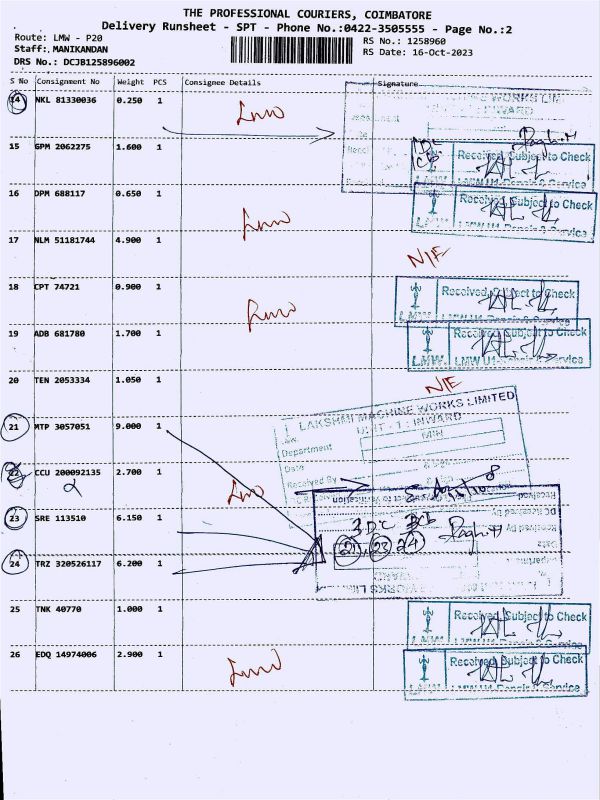 THE PROFESSIONAL COURIERS, COIMBATORE
Delivery Runsheet - SPT - Phone No.:0422-3505555 - Page No.:2
Route: LMW - P20 RS No.: 1258960
Staff: MANIKANDAN RS Date: 16-Oct-2023
DRS No.: DCJB125896002
S No Consignment No Weight PCS Consignee Details Signature
14 NKL 81330036 0.250 1 Lmw
INWARD
15 GPM 2062275 1.600 1 Received Subject to Check
LMW U1-Repair & Service
16 DPM 688117 0.650 1 Received Subject to Check
Lmw
LMW U1-Repair & Service
17 NLM 51181744 4.900 1 N/E
18 CPT 74721 0.900 1 Received Subject to Check
Lmw
LMW
19 ADB 681780 1.700 1 Received Subject to Check
LMW LMW U1-Repair & Service
20 TEN 2053334 1.050 1 N/E
LAKSHMI MACHINE WORKS LIMITED
UNIT - 1 : INWARD
21 MTP 3057051 9.000 1 MIN
Department
Date
22 CCU 200092135 2.700 1 Received By
Lmw
23 SRE 113510 6.150 1 3DC
21, 23 24
24 TRZ 320526117 6.200 1
25 TNK 40770 1.000 1 Received Subject to Check
LMW
26 EDQ 14974006 2.900 1 Received Subject to Check
Lmw
LMW LMW U1-Repair & Service